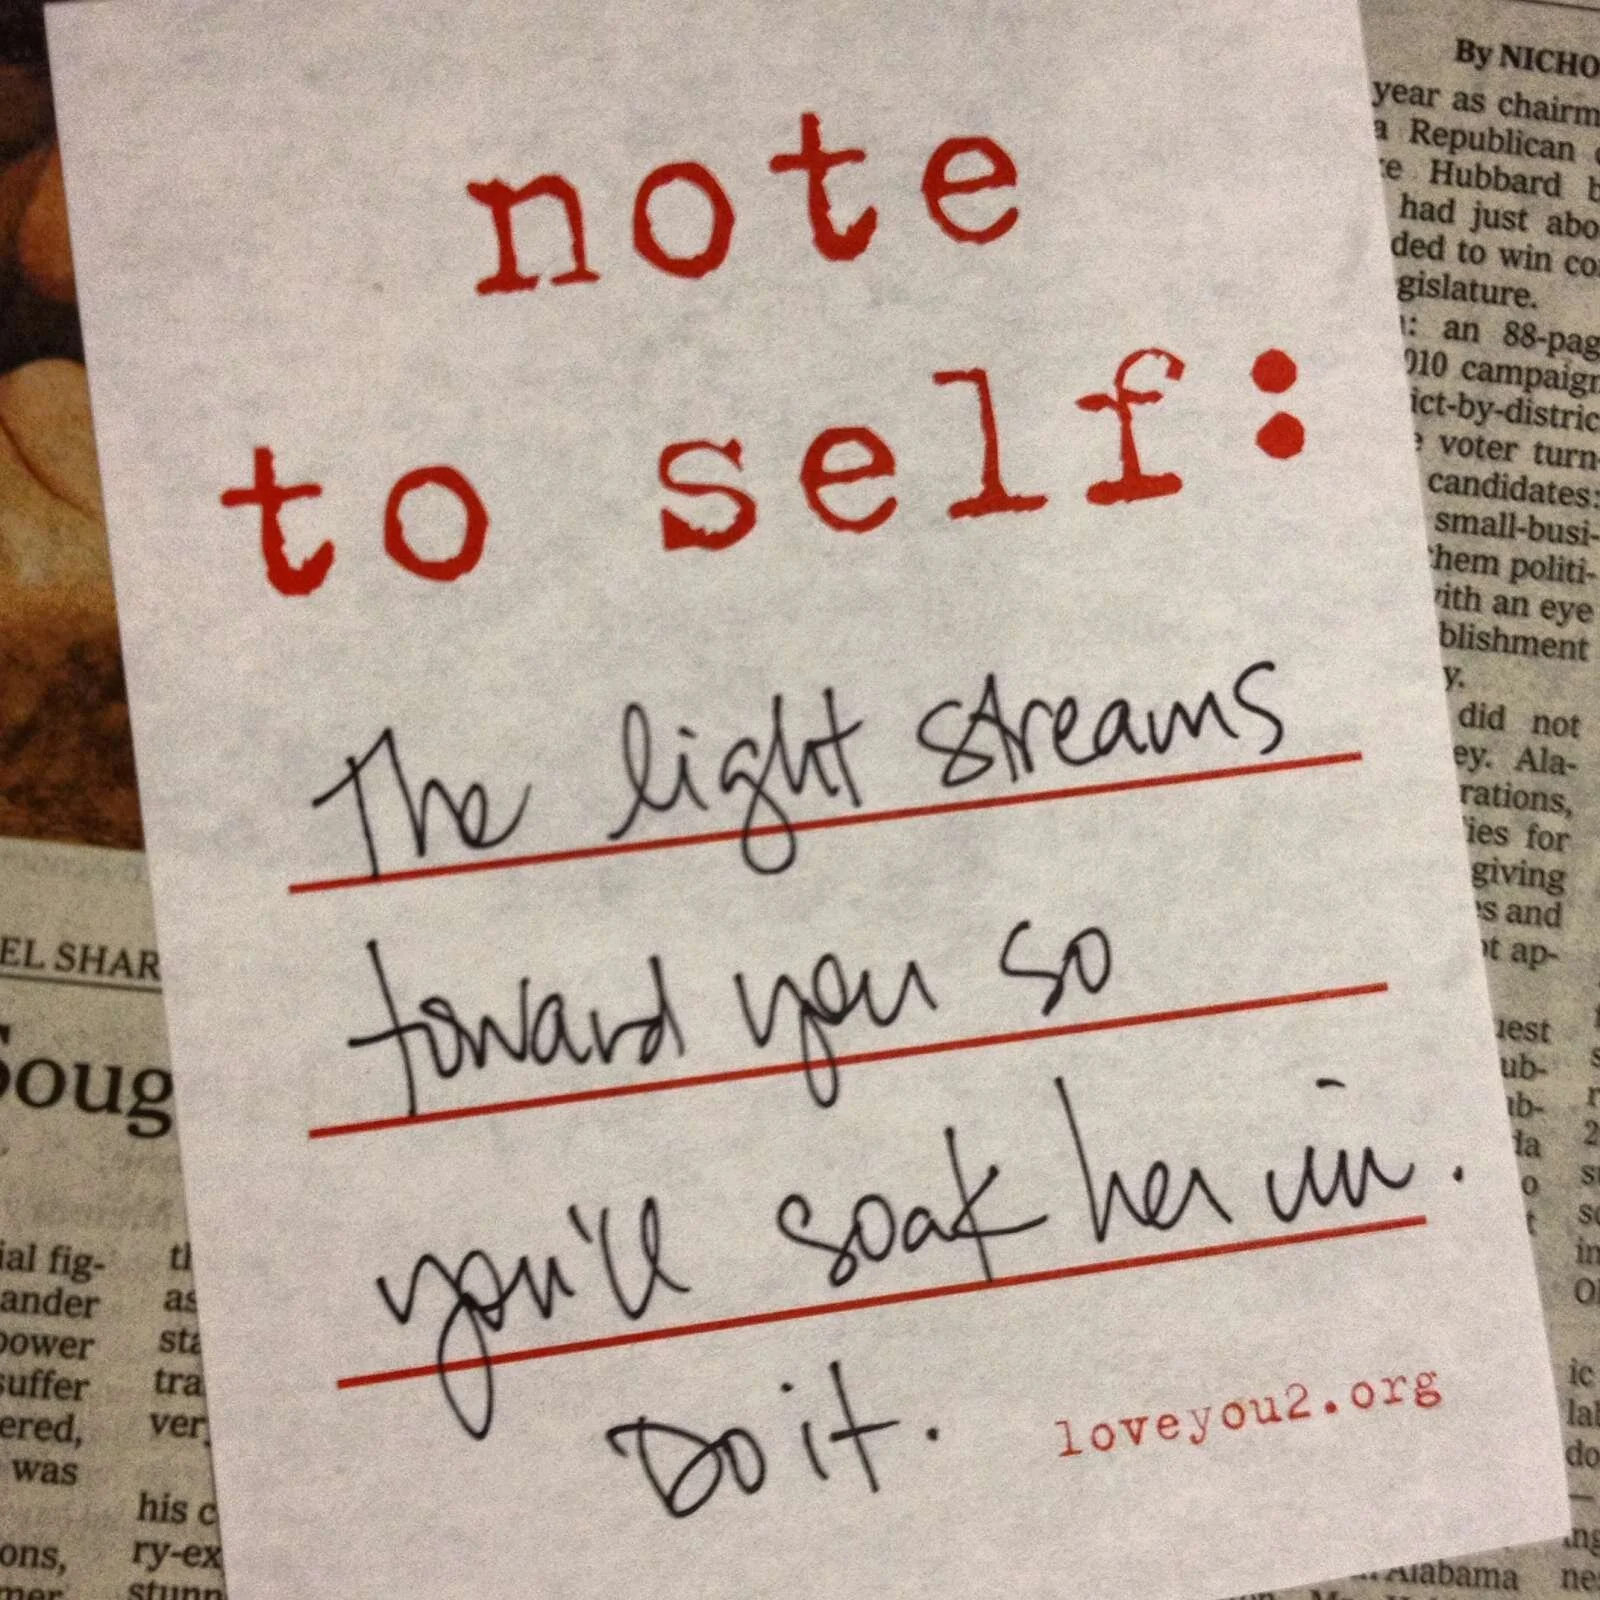 note
to self:
The light streams
toward you so
you'll soak her in.
Do it.
loveyou2.org
By NICHO
year as chairm
a Republican
e Hubbard b
had just abo
ded to win co
gislature.
: an 88-pag
010 campaign
ict-by-distric
voter turn-
candidates:
small-busi-
hem politi-
vith an eye
blishment
y.
did not
ey. Ala-
rations,
ies for
giving
s and
ot ap-
uest
ub-
ub-
da
o
t
EL SHAR
Soug
ial fig-
ander
power
suffer
ered,
was
ons,
mer
th
as
sta
tra
ver
his c
ry-ex
stunn
Alabama